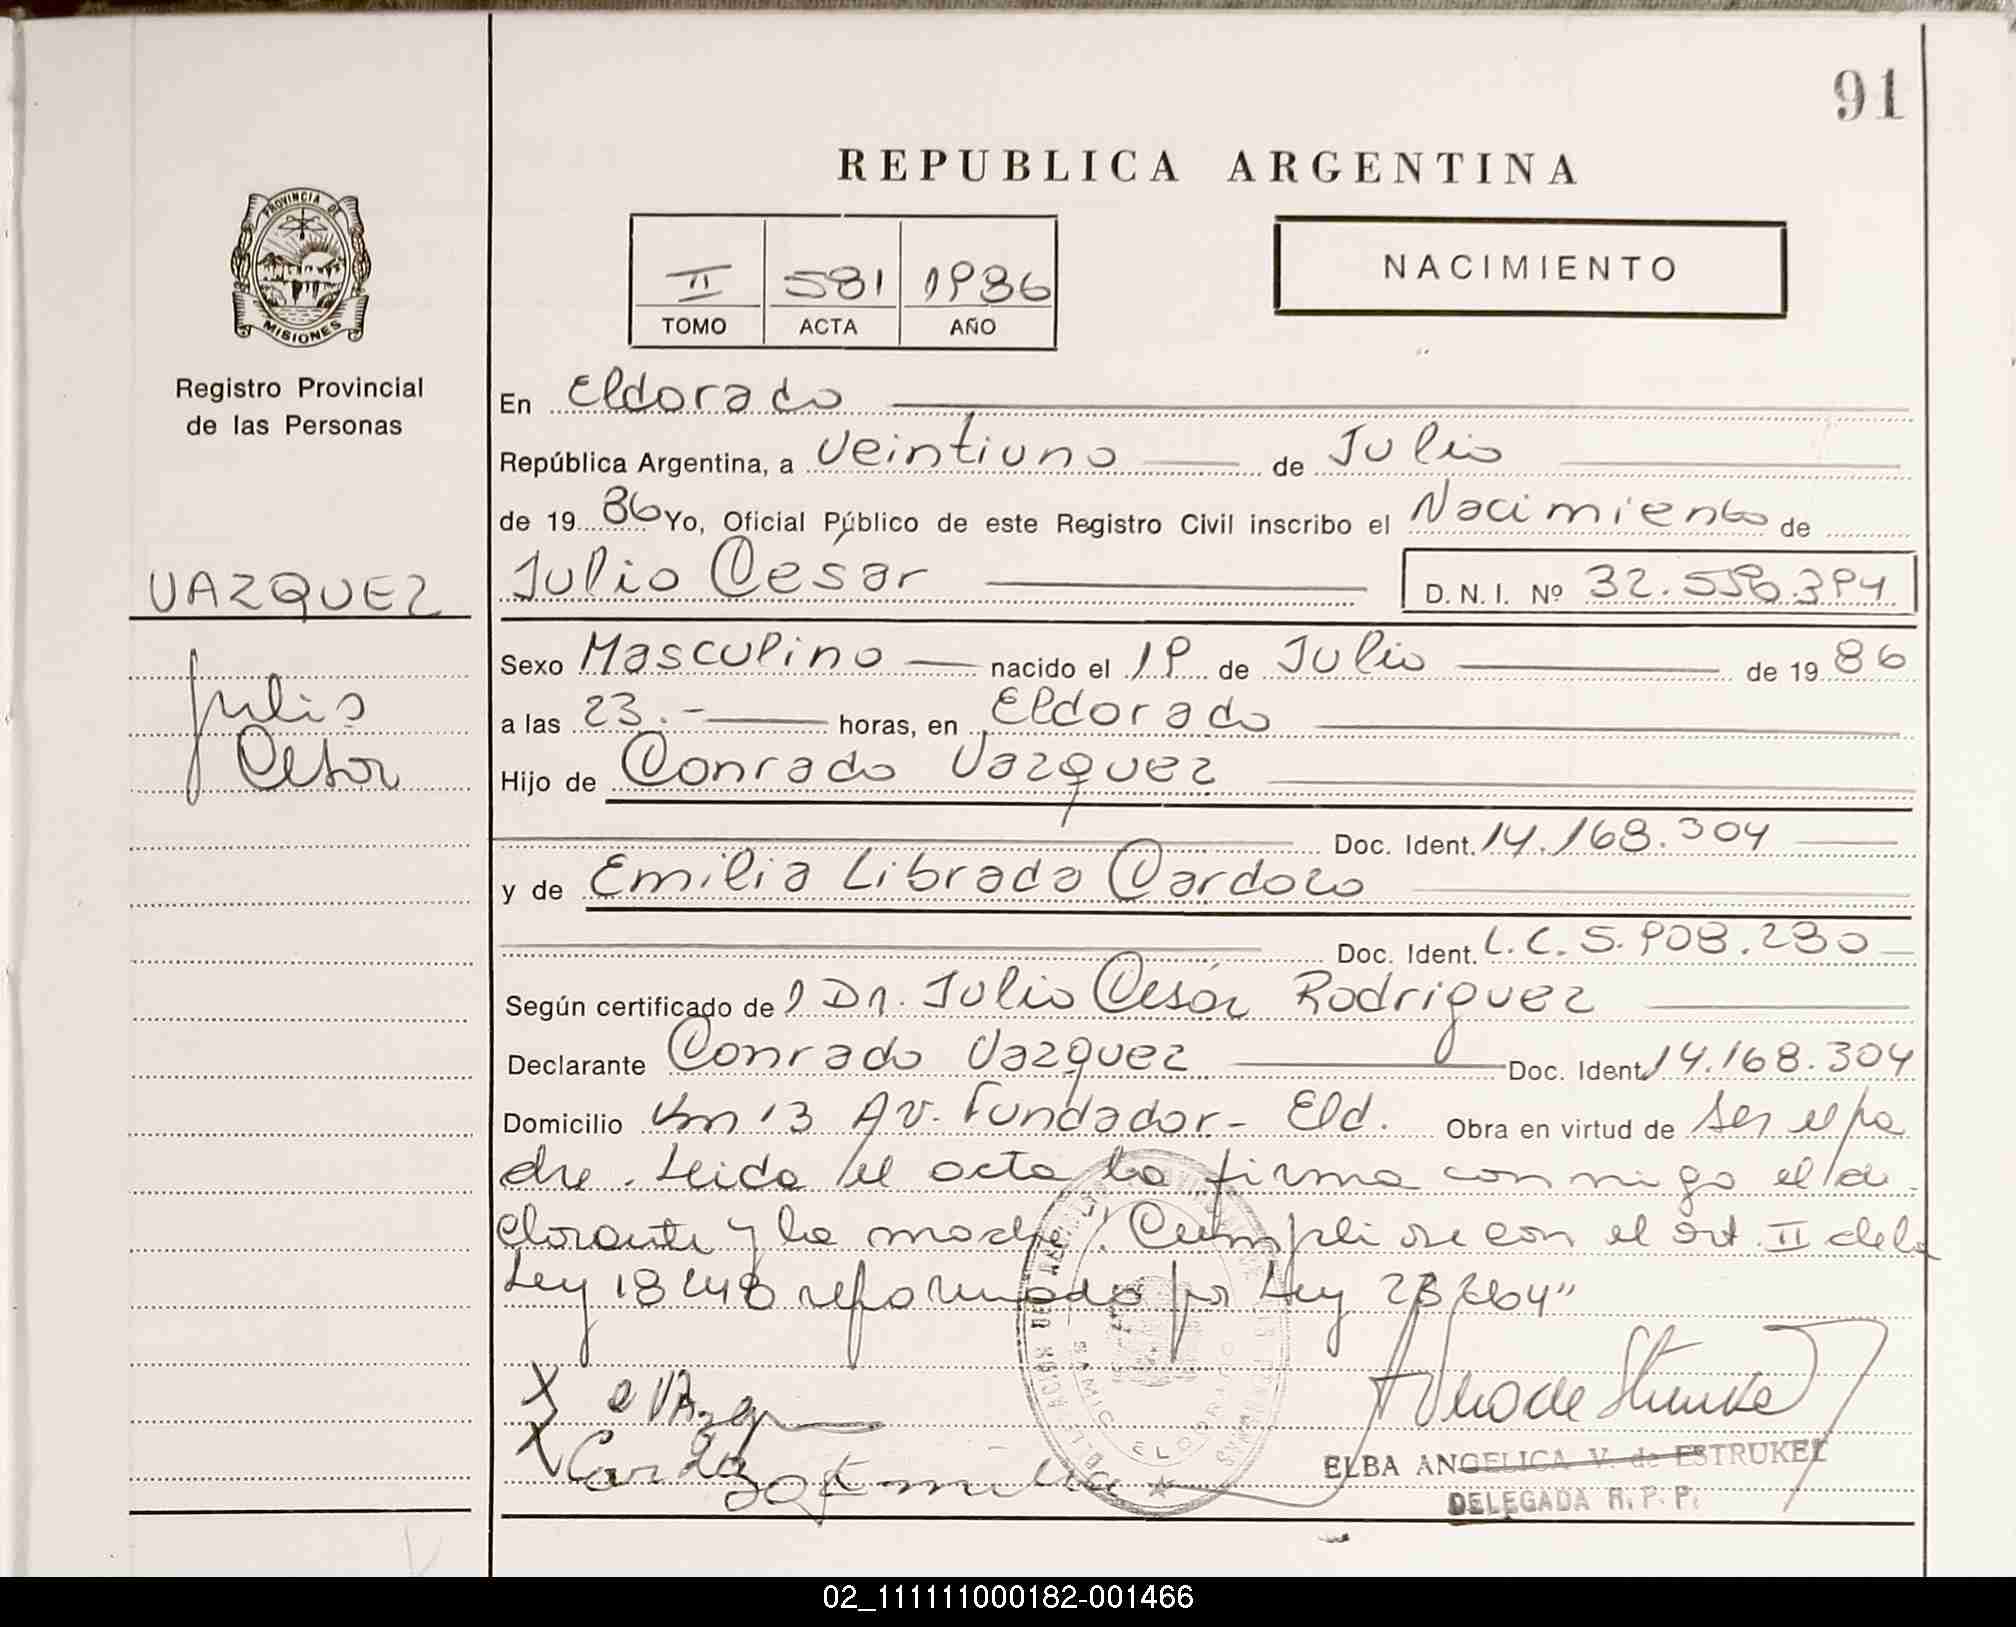 91
REPUBLICA ARGENTINA
PROVINCIA DE
MISIONES
Registro Provincial
de las Personas
II 581 1986
TOMO ACTA AÑO
NACIMIENTO
En Eldorado
República Argentina, a veintiuno de Julio
de 19 86 Yo, Oficial Público de este Registro Civil inscribo el Nacimiento de
VAZQUEZ
Julio Cesar
D. N. I. Nº 32.556.394
Julio
Cesar
Sexo Masculino nacido el 19 de Julio de 19 86
a las 23.- horas, en Eldorado
Hijo de Conrado Vazquez
Doc. Ident. 14.168.304
y de Emilia Librada Cardozo
Doc. Ident. L.C. 5.908.280
Según certificado de l Dr. Julio Cesár Rodriguez
Declarante Conrado Vazquez Doc. Ident. 14.168.304
Domicilio Km 13 Av. Fundador - Eld. Obra en virtud de ser el pa
dre. Leida el acta la firma conmigo el de
clarante y la madre. Cumplióse con el art. II de la
Ley 18248 reformado por Ley 23264"
Cardozo Emilia
ELDORADO
ELBA ANGELICA V. de ESTRUKEL
DELEGADA R. P. P.
02_111111000182-001466